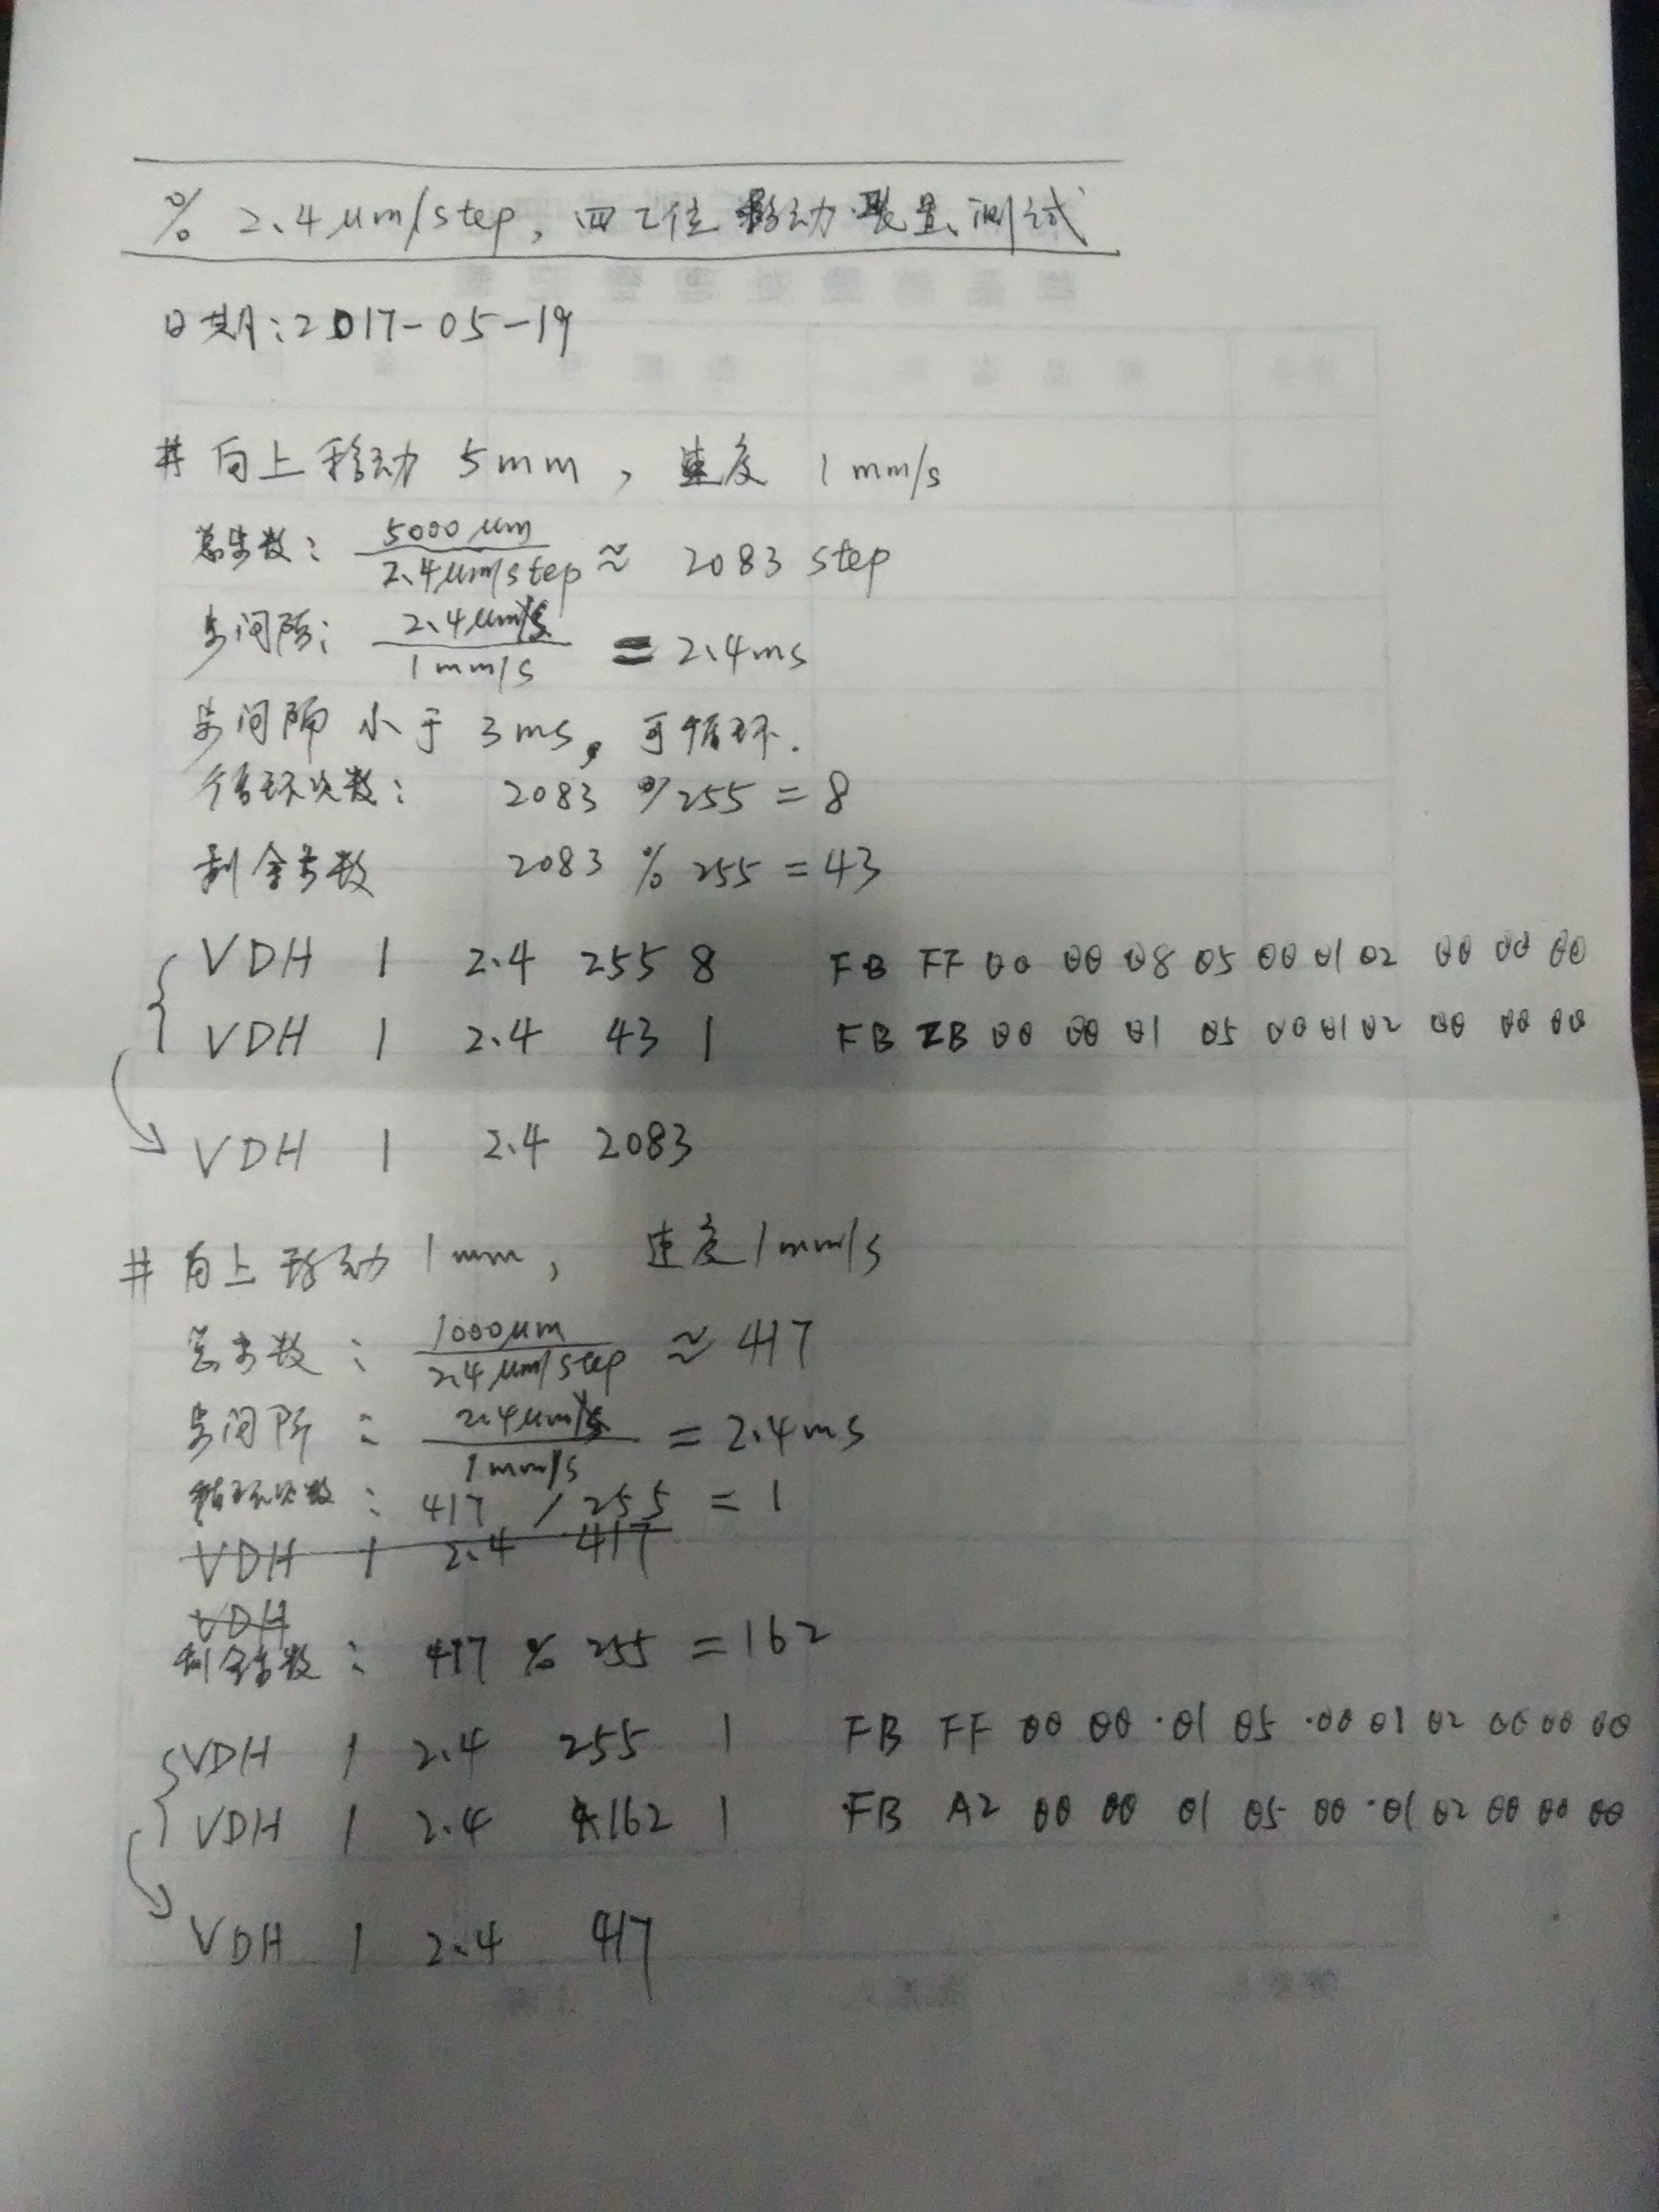 % 2.4μm/step, 四工位移动装置测试
日期:2017-05-19
# 向上移动 5mm, 速度 1mm/s
总步数: 5000μm / 2.4μm/step ≈ 2083 step
步间隔: 2.4μm / 1mm/s = 2.4ms
步间隔小于3ms, 可循环.
循环次数: 2083 % 255 = 8
剩余步数 2083 % 255 = 43
VDH 1 2.4 255 8 FB FF 00 00 08 05 00 01 02 00 00 00
VDH 1 2.4 43 1 FB 2B 00 00 01 05 00 01 02 00 00 00
VDH 1 2.4 2083
# 向上移动 1mm, 速度 1mm/s
总步数: 1000μm / 2.4μm/step ≈ 417
步间隔: 2.4μm / 1mm/s = 2.4ms
循环次数: 417 / 255 = 1
VDH 1 2.4 417
VDH
剩余步数: 417 % 255 = 162
VDH 1 2.4 255 1 FB FF 00 00 01 05 00 01 02 00 00 00
VDH 1 2.4 162 1 FB A2 00 00 01 05 00 01 02 00 00 00
VDH 1 2.4 417